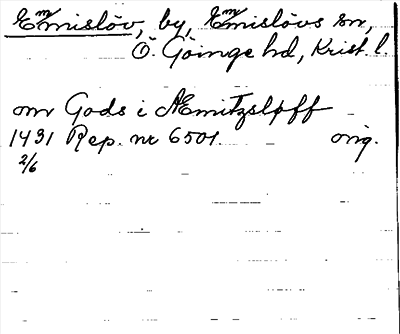 Emmislöv, by, Emmislövs sn,
Ö. Göinge hd, Krist. l.
om Gods i Æmitzsløff
1491 Rep. nr 6501. orig.
2/6